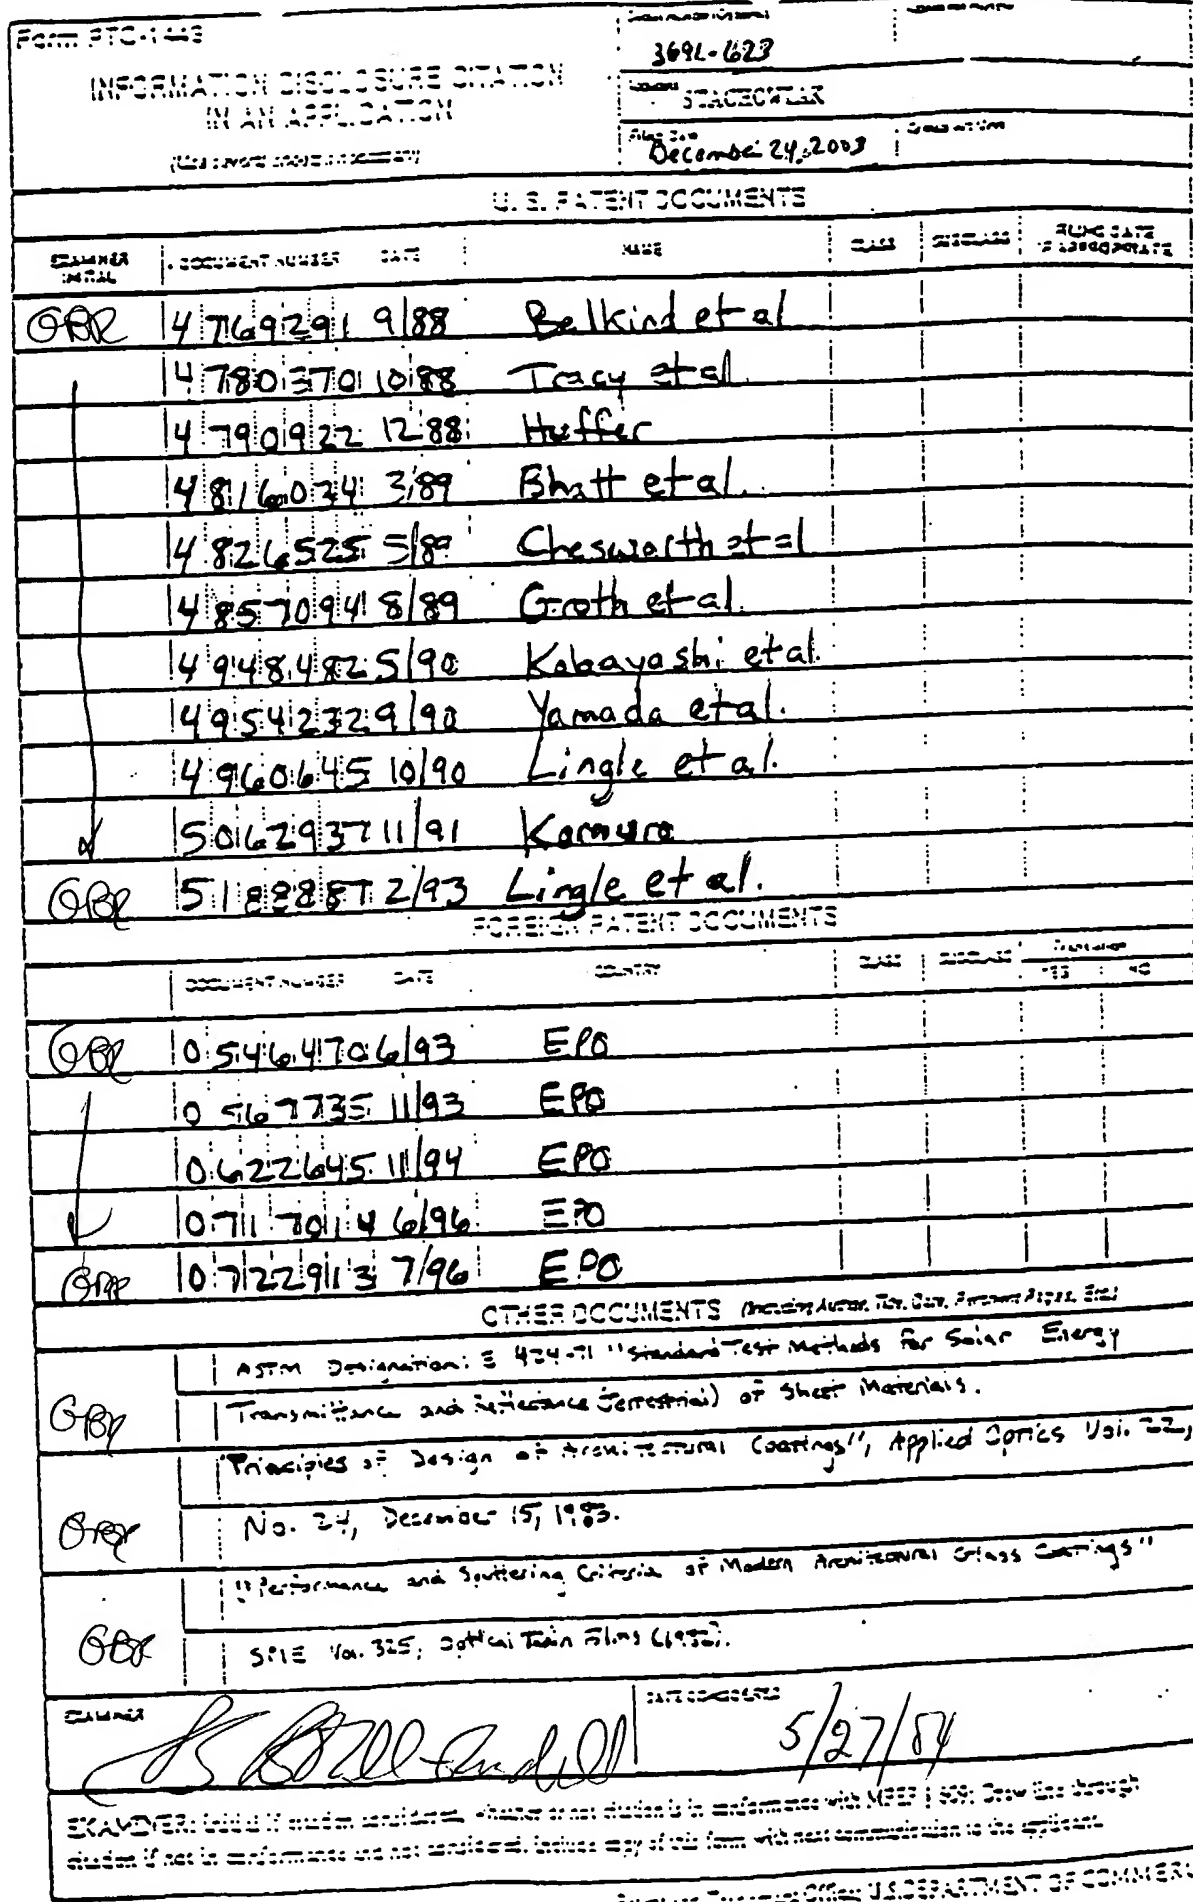 Form PTO-1449
3691-623
INFORMATION DISCLOSURE CITATION
IN AN APPLICATION
STACHOWIAK
Filing Date
December 24, 2003
U. S. PATENT DOCUMENTS
EXAMINER INITIAL DOCUMENT NUMBER DATE NAME CLASS SUBCLASS FILING DATE IF APPROPRIATE
GBR 4769291 9/88 Belkind et al
4780370 10/88 Tracy et al.
4790922 12/88 Huffer
4816034 3/89 Bhatt et al.
4826525 5/89 Chesworth et al
4857094 8/89 Groth et al.
4948482 5/90 Kobayashi et al.
4954232 9/90 Yamada et al.
4960645 10/90 Lingle et al.
5062937 11/91 Komuro
GBR 5188887 2/93 Lingle et al.
FOREIGN PATENT DOCUMENTS
DOCUMENT NUMBER DATE COUNTRY CLASS SUBCLASS Translation
YES NO
GBR 0546470 6/93 EPO
0567735 11/93 EPO
0622645 11/94 EPO
0717014 6/96 EPO
GBR 0722913 7/96 EPO
OTHER DOCUMENTS (Including Author, Title, Date, Pertinent Pages, Etc.)
ASTM Designation: E 424-71 "Standard Test Methods for Solar Energy
GBR Transmittance and Reflectance (Terrestrial) of Sheet Materials.
"Principles of Design of Architectural Coatings", Applied Optics Vol. 22,
GBR No. 24, December 15, 1983.
"Performance and Sputtering Criteria of Modern Architectural Glass Coatings"
GBR SPIE Vol. 325, Optical Thin Films (1982).
EXAMINER DATE CONSIDERED
5/27/04
EXAMINER: Initial if citation considered, whether or not citation is in conformance with MPEP § 609; Draw line through
citation if not in conformance and not considered. Include copy of this form with next communication to the applicant.
Office; U.S. DEPARTMENT OF COMMERC